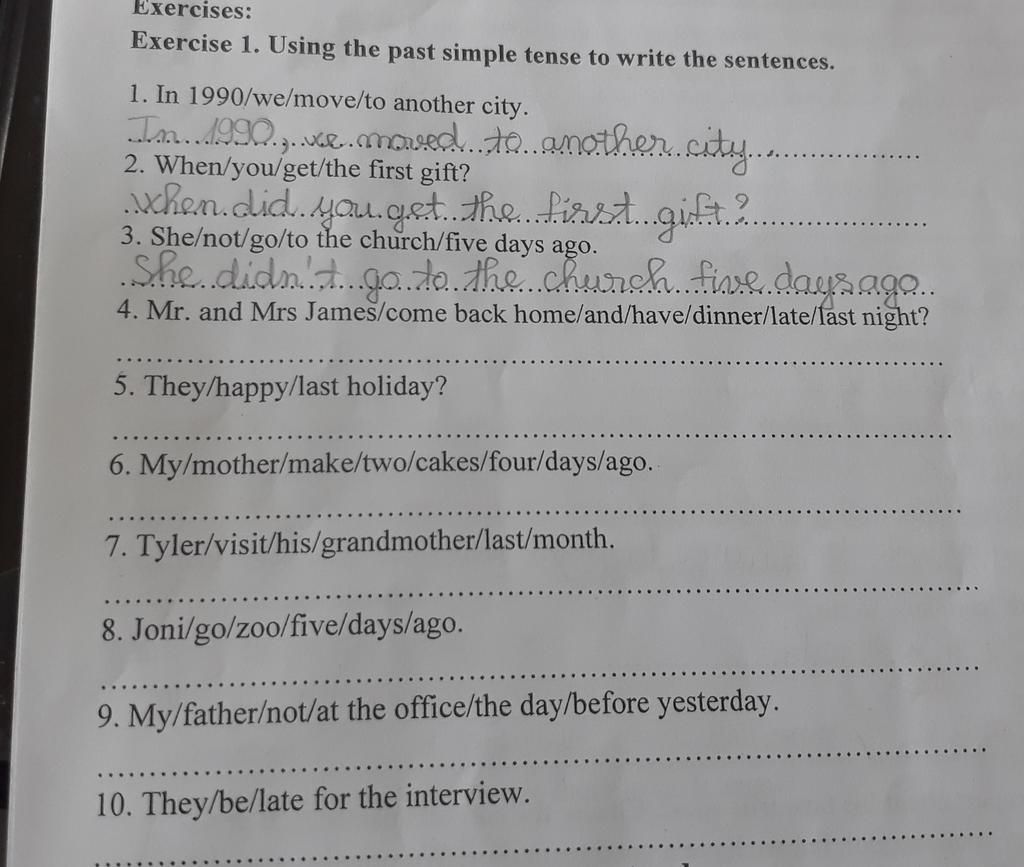 Exercises:
Exercise 1. Using the past simple tense to write the sentences.
1. In 1990/we/move/to another city.
In 1990, we moved to another city.
2. When/you/get/the first gift?
When did you get the first gift?
3. She/not/go/to the church/five days ago.
She didn't go to the church five days ago.
4. Mr. and Mrs James/come back home/and/have/dinner/late/last night?
5. They/happy/last holiday?
6. My/mother/make/two/cakes/four/days/ago.
7. Tyler/visit/his/grandmother/last/month.
8. Joni/go/zoo/five/days/ago.
9. My/father/not/at the office/the day/before yesterday.
10. They/be/late for the interview.